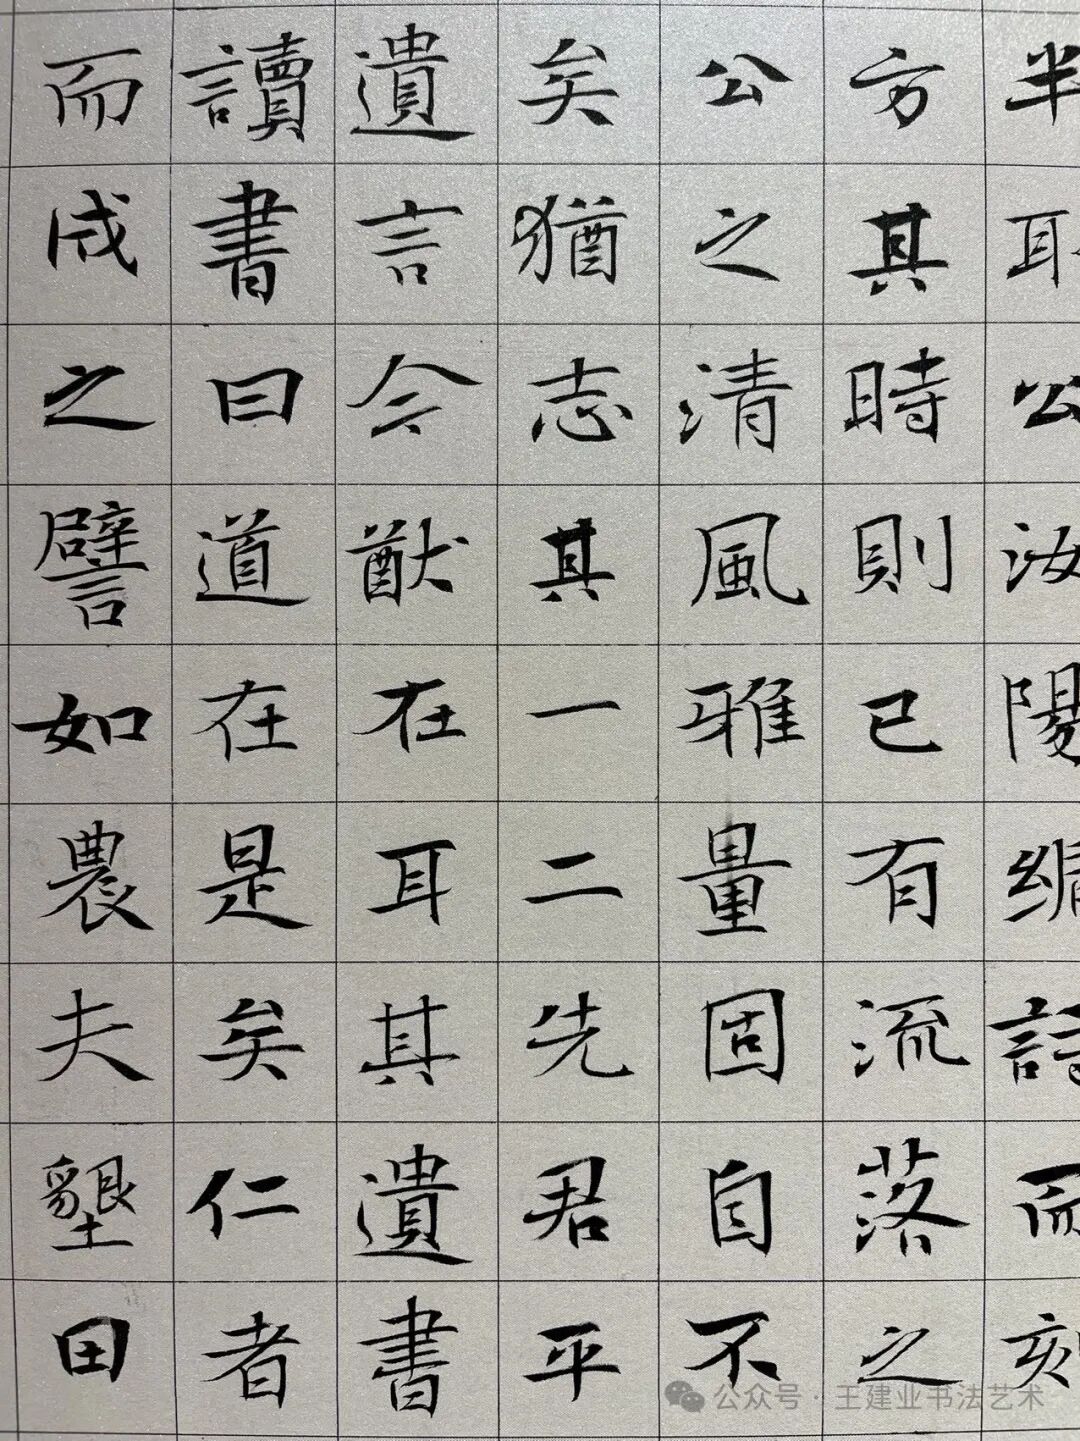 半耳公汝陽編詩而刻
方其時則已有流落之
公之清風雅量固自不
矣猶志其一二先君平
遺言今猷在耳其遺書
讀書曰道在是矣仁者
而成之譬如農夫墾田
公众号·王建业书法艺术